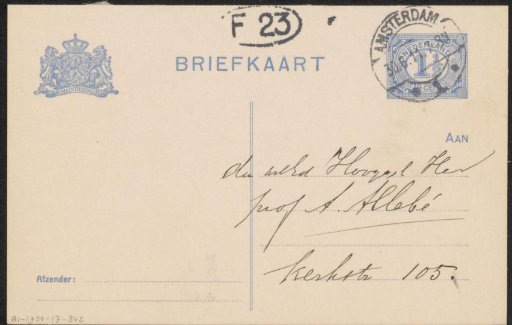 F 23
AMSTERDAM
BRIEFKAART
AAN
den weled Hoogel Heer
prof A. Allebé
Kerkstr 105.
Afzender: